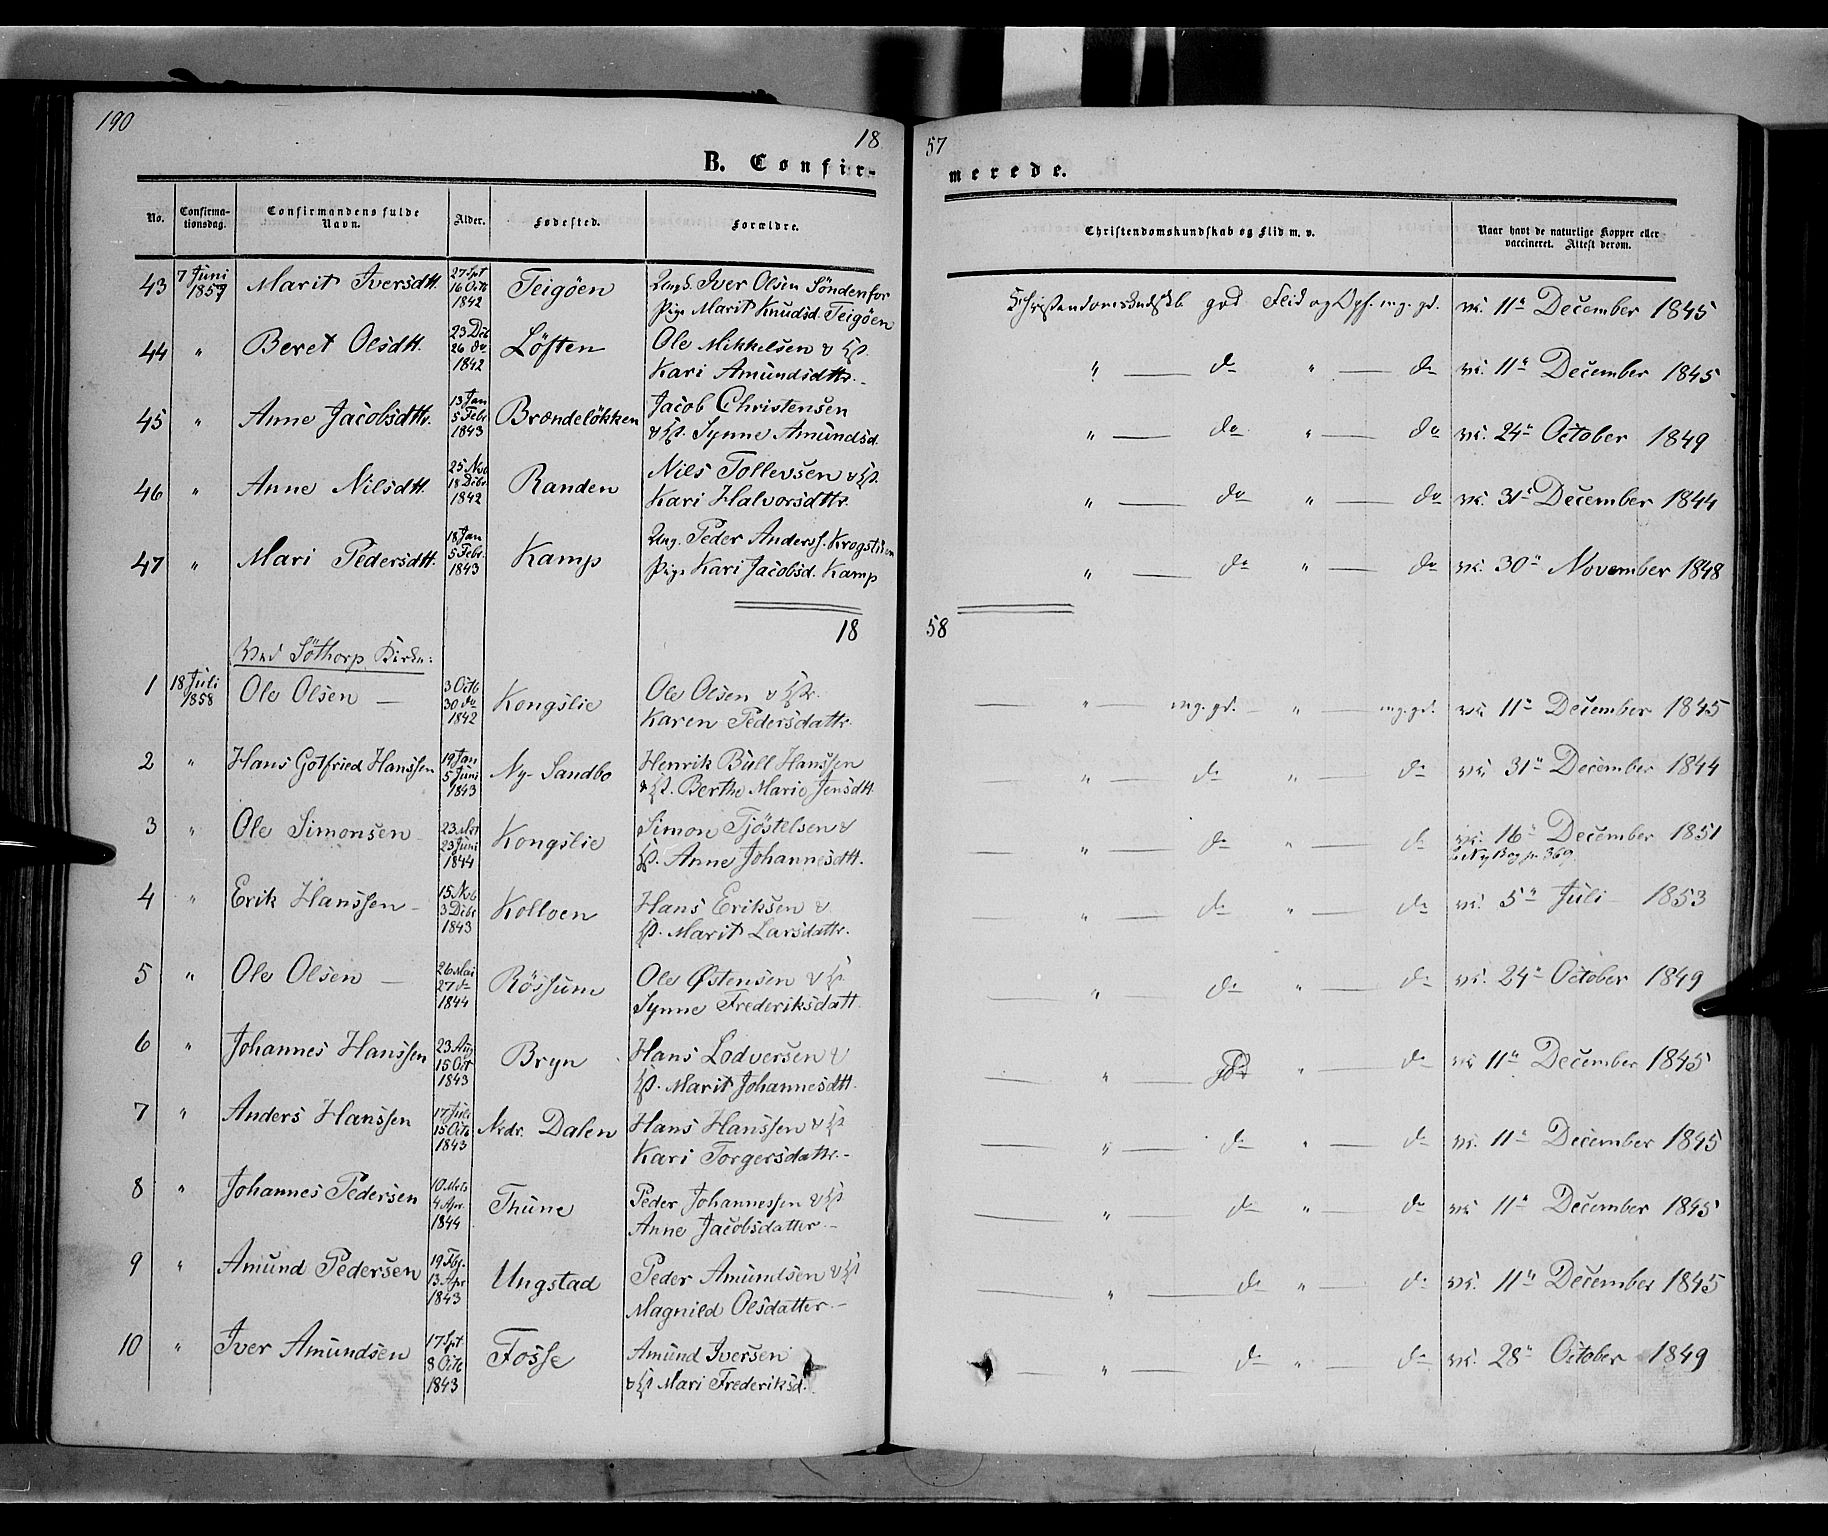 190
18 57
B. Confirmerede.
No. Confirmationsdag. Confirmandens fulde Navn. Alder. Fødested. Forældre. Christendomskundskab og Flid m. v. Naar havt de naturlige Kopper eller vaccineret. Attest derom.
43 7 Juni 1857 Marit Iversdtt. 27 Spt 16 Octb 1842 Teigöen Ungk. Iver Olsen Söndenfor Pige Marit Knudsd. Teigöen Christendomskundskb god Flid og Opf. mg. gd. vc. 11te December 1845
44 " Beret Olsdtt. 23 Dcb 26 do 1842 Löften Ole Mikkelsen & H. Kari Amundsdttr. " do " do vc. 11te December 1845
45 " Anne Jacobsdttr. 13 Jan 5 Febr 1843 Brændelökken Jacob Christensen & H. Synne Amundsd. " do " do vc. 24de October 1849
46 " Anne Nilsdtt. 25 Nvb 18 Dcbr 1842 Randen Nils Tollevsen & H. Kari Halvorsdttr. " do " do vc. 31te December 1844
47 " Mari Pedersdtt. 18 Jan 5 Febr. 1843 Kamp Ung. Peder Anderss. Krogstuen Pige Kari Jacobsd. Kamp " do " do vc. 30te November 1848
18 58
Ved Söthorp Kirke:
1 18 Juli 1858 Ole Olsen 3 Octb 30 do 1842 Kongslie Ole Olsen & H. Karen Pedersdattr. " mg. gd. " mg. gd. vc. 11te December 1845
2 " Hans Gotfried Hanssen 19 Jan 5 Juni 1843 Ny-Sandbo Henrik Bull Hanssen & H. Berthe Marie Jensdtt. " do " do vc. 31te December 1844
3 " Ole Simonsen 23 23 Juni 1844 Kongslie Simon Tjöstelsen & H. Anne Johannesdtt. " do " do vc. 16de December 1851
369
4 " Erik Hanssen 15 Nvb 3 Dcbr 1843 Kolloen Hans Eriksen & H. Marit Larsdattr. " do " do vc. 5te Juli 1853
5 " Ole Olsen 26 Mai 27 do 1844 Rössum Ole Østensen & H. Synne Frederiksdatt. " do " do vc. 24de October 1849
6 " Johannes Hanssen 23 Aug 15 Oct 1843 Bryn Hans Lodversen & H. Marit Johannesdtt. " gd. " do vc 11te December 1845
7 " Anders Hanssen 17 Juli 15 Octb 1843 Nrdr. Dalen Hans Hanssen & H. Kari Torgersdattr. " do " do vc. 11te December 1845
8 " Johannes Pedersen 10 Mrts 4 Apr. 1844 Thune Peder Johannessen & H. Anne Jacobsdatter " do " do vc 11te December 1845
9 " Amund Pedersen 19 Fbr. 13 Apr 1843 Ungstad Peder Amundsen & H. Magnild Olsdatter " do " do vc. 11te December 1845
10 " Iver Amundsen 17 Spt 8 Octb 1843 Fosse Amund Iversen & H. Mari Frederiksd. " do " do vc. 28de October 1849